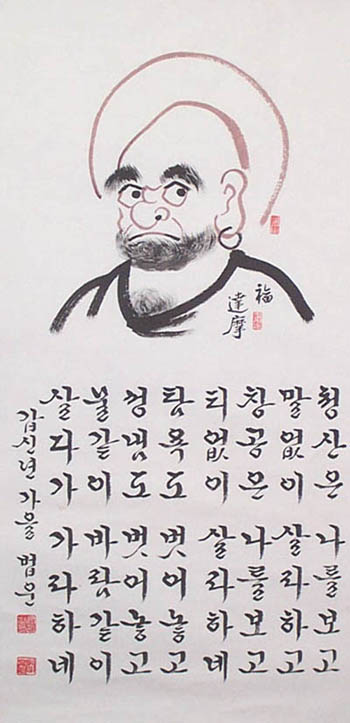 福
達摩
청산은 나를보고
말없이 살라하고
창공은 나를보고
티없이 살라하네
탐욕도 벗어놓고
성냄도 벗어놓고
물같이 바람같이
살다가 가라하네
갑신년 가을 법운